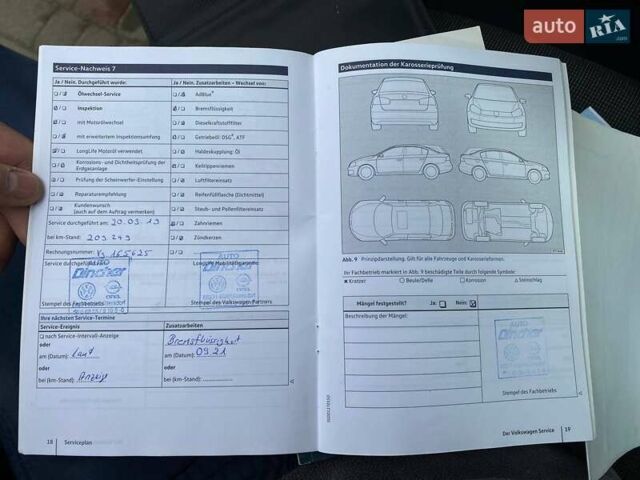 auto RIA
.com
Service-Nachweis 7
Ja / Nein. Durchgeführt wurde: Ja / Nein. Zusatzarbeiten – Wechsel von:
Ölwechsel-Service AdBlue®
Inspektion Bremsflüssigkeit
mit Motorölwechsel Dieselkraftstofffilter
mit erweitertem Inspektionsumfang Getriebeöl: DSG®, ATF
LongLife Motoröl verwendet Haldexkupplung: Öl
Korrosions- und Dichtheitsprüfung der Erdgasanlage Keilrippenriemen
Prüfung der Scheinwerfer-Einstellung Luftfiltereinsatz
Reparaturempfehlung Reifenfüllflasche (Dichtmittel)
Kundenwunsch Staub- und Pollenfiltereinsatz
(auch auf dem Auftrag vermerken)
Service durchgeführt am: 20.03.19 Zahnriemen
bei km-Stand: 203.249 Zündkerzen
Rechnungsnummer: 155625
Service durchgeführt LongLife Mobilitätsgarantie
AUTO
Dincher
OPEL
AUTO
Dincher
OPEL
Stempel des Fachbetriebs Stempel des Volkswagen Partners
Ihre nächsten Service-Termine
Service-Ereignis Zusatzarbeiten
nach Service-Intervall-Anzeige Bremsflüssigkeit
oder
am (Datum): Laut am (Datum): 03.21
oder oder
bei (km-Stand): Anzeige bei (km-Stand):
18 Serviceplan
Dokumentation der Karosserieprüfung
Abb. 9 Prinzipdarstellung. Gilt für alle Fahrzeuge und Karosserieformen.
Ihr Fachbetrieb markiert in Abb. 9 beschädigte Teile durch folgende Symbole:
× Kratzer ○ Beule/Delle □ Korrosion △ Steinschlag
Mängel festgestellt? Ja: Nein:
Beschreibung der Mängel:
AUTO
Dincher
OPEL
Stempel des Fachbetriebs
Der Volkswagen Service 19